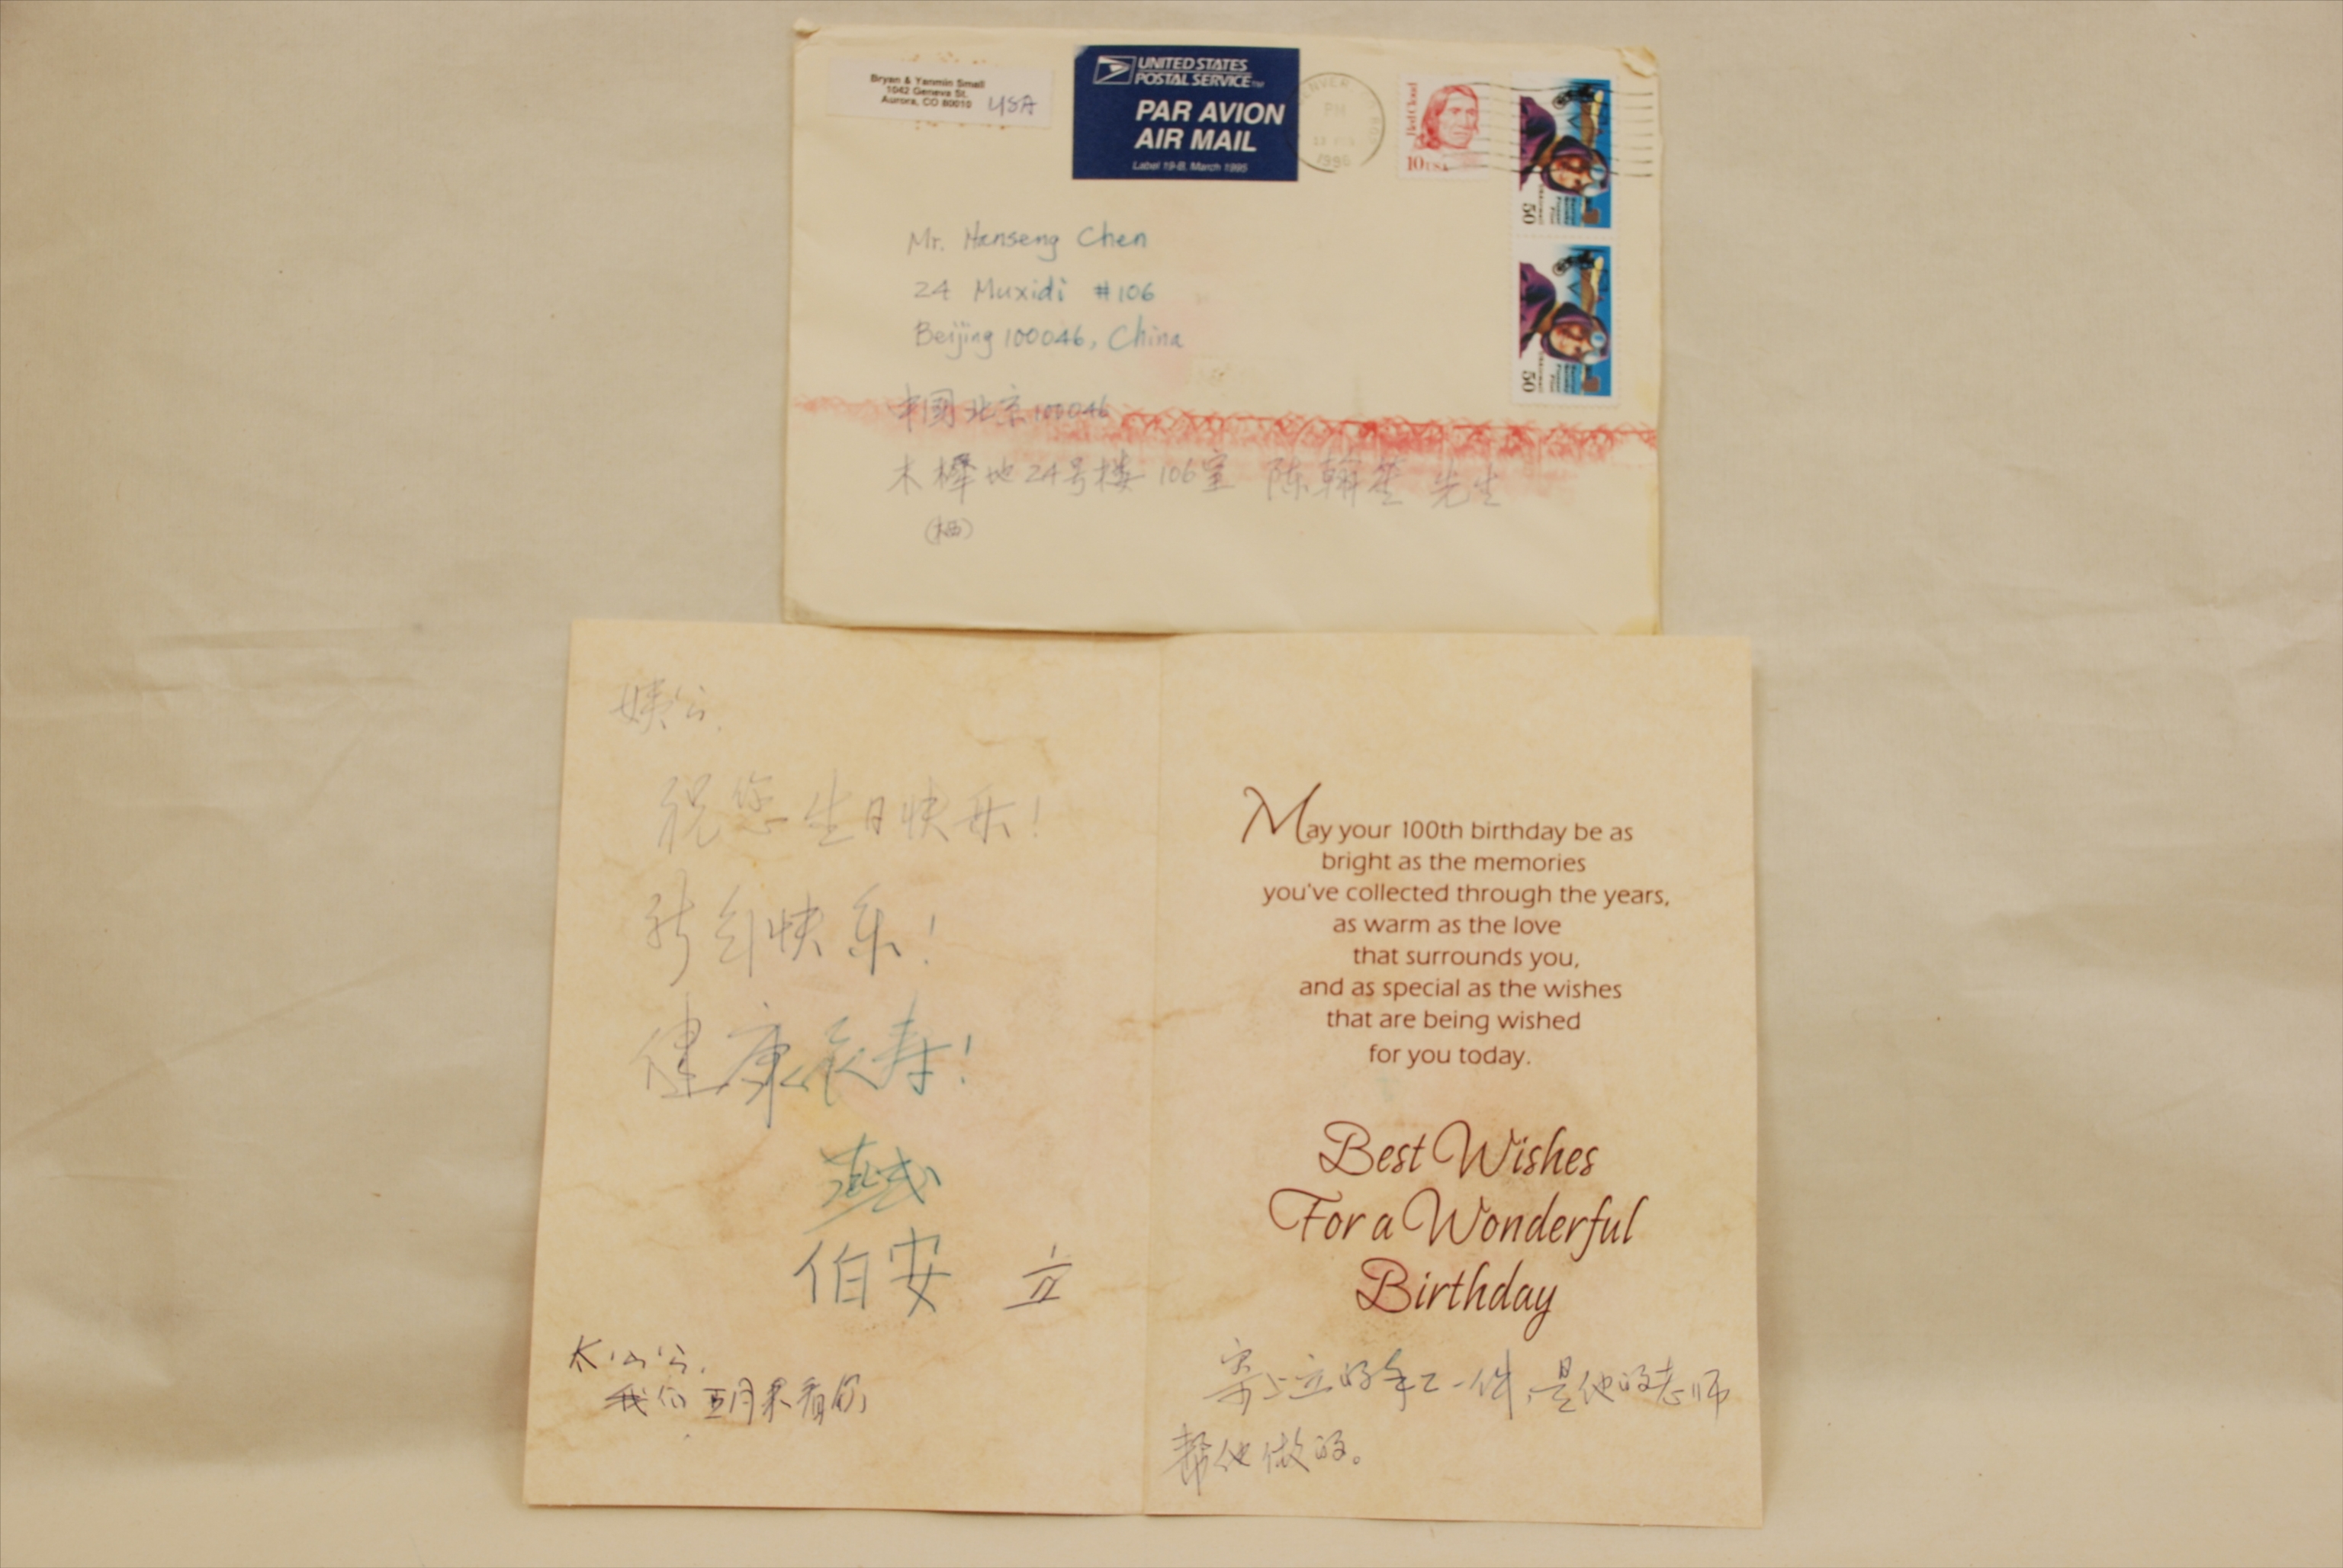 Bryan & Yanmin Small
1042 Geneva St.
Aurora, CO 80010 USA
UNITED STATES
POSTAL SERVICE™
PAR AVION
AIR MAIL
Label 19-B, March 1995
PM
1996
Red Cloud
10 USA
50
50
Mr. Hanseng Chen
24 Muxidi #106
Beijing 100046, China
中國北京100046
木樨地24号楼 106室 陈翰笙 先生
姨公,
祝您生日快乐!
新年快乐!
健康长寿!
伯安 立
太公,
我们五月来看
May your 100th birthday be as
bright as the memories
you've collected through the years,
as warm as the love
that surrounds you,
and as special as the wishes
that are being wished
for you today.
Best Wishes
For a Wonderful
Birthday
寄上立的手工一件,是他的老师
帮他做的。